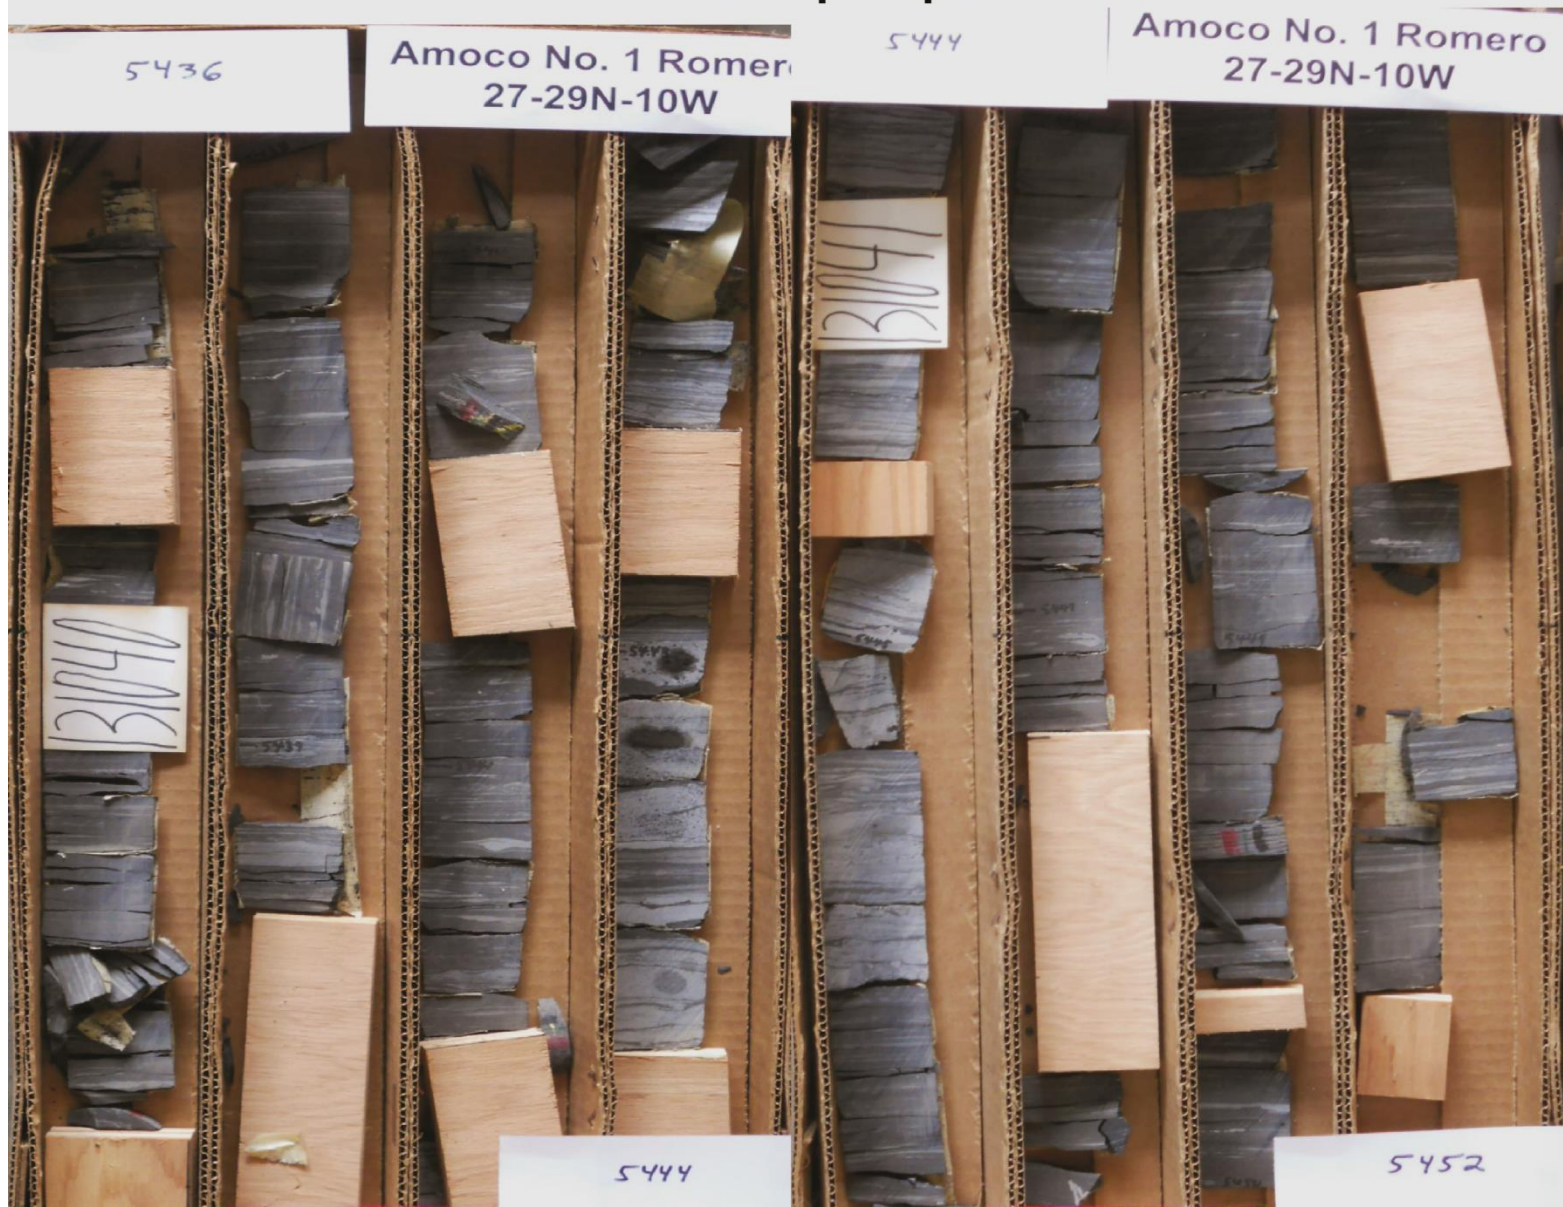 5436
Amoco No. 1 Romer
27-29N-10W
5444
Amoco No. 1 Romero
27-29N-10W
131041
131040
5439
5443
5449
5444
5452